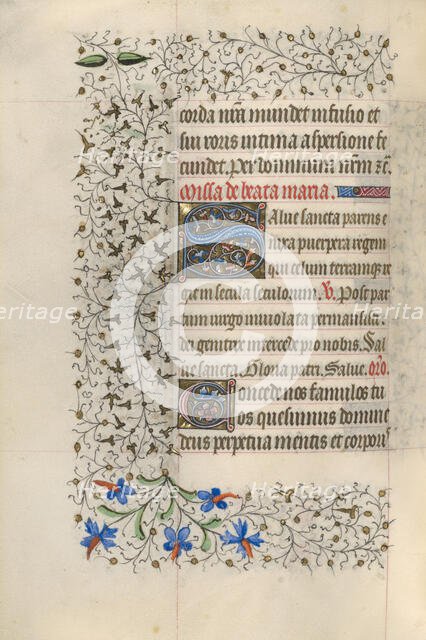 corda nrã mundet infusio et
sui roris intima aspersione fe
cundet. Per dominum nrm zc̃.
missa de beata maria.
Salue sancta parens e
nixa puerpera regem
qui celum terramqȝ re
git in secula seculorum. V̇. Post par
tum virgo inuiolata permansisti.
dei genitrix intercede pro nobis. Sal
ue sancta. Gloria patri. Salue. or̃o.
Concede nos famulos tu
os quesumus domine
deus perpetua mentis et corporis